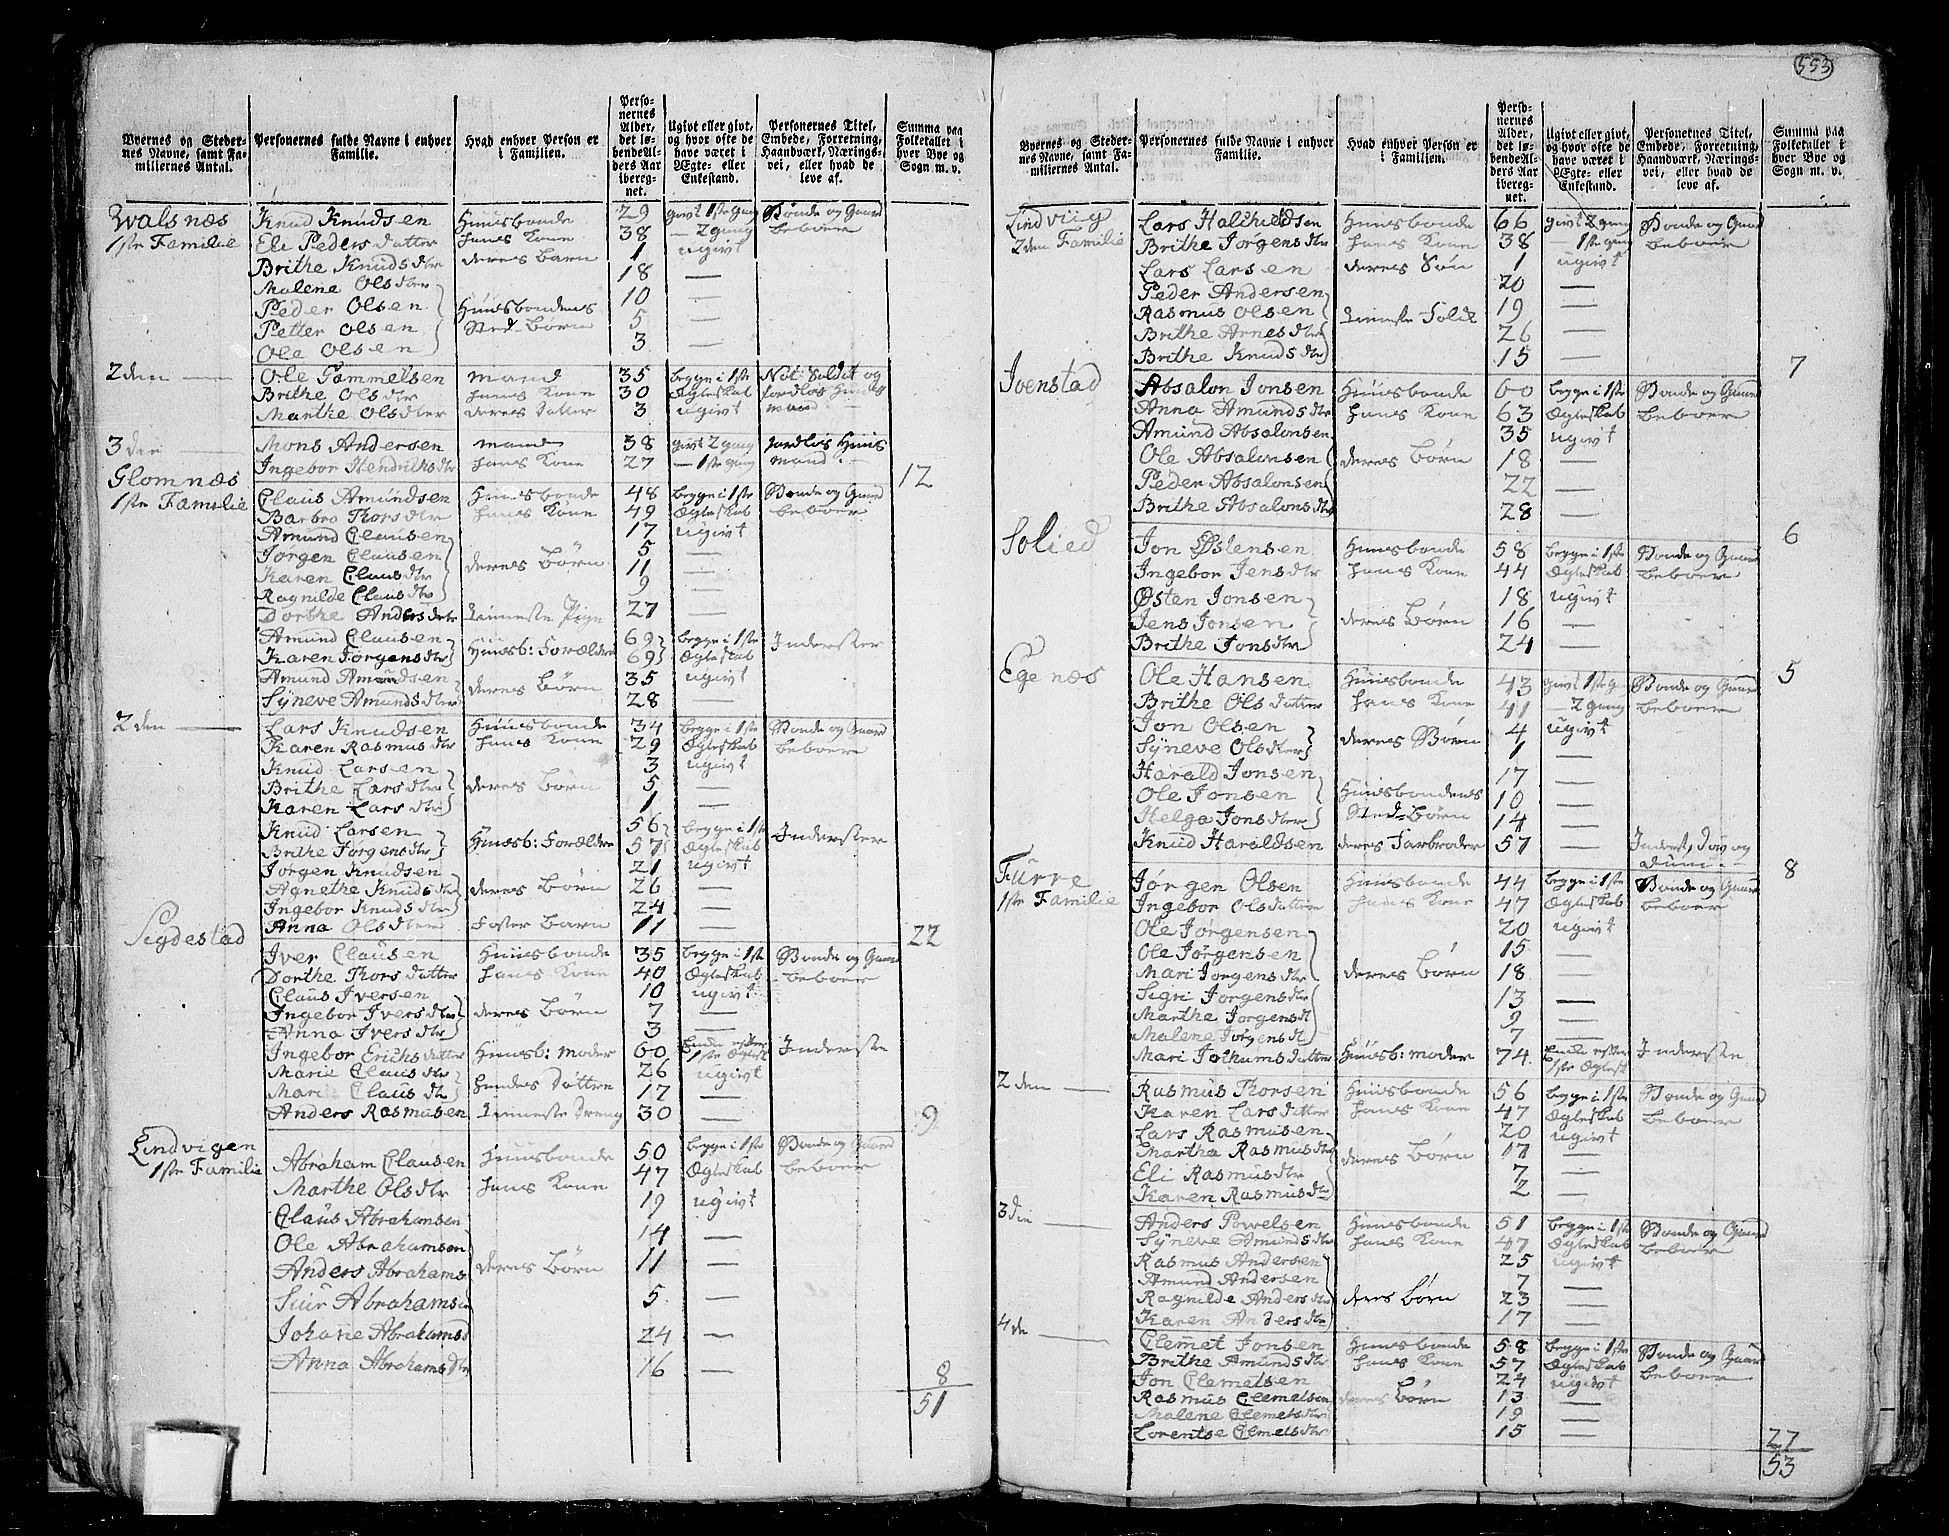 553
Byernes og Stedernes Navne, samt Familiernes Antal.
Personernes fulde Navne i enhver Familie.
Hvad enhver Person er i Familien.
Personernes Alder, det løbende Alders Aar iberegnet.
Ugivt eller givt, og hvor ofte de have været i Ægte- eller Enkestand.
Personernes Titel, Embede, Forretning, Haandværk, Næringsvei, eller hvad de leve af.
Summa paa Folketallet i hver Bye og Sogn m. v.
Walsnæs Knud Knudsen Huusbonde 29 givt 1ste gang Bonde og Gaard
1ste Familie Eli Peders datter hans Kone 38 — 2 gang beboer
Brithe Knuds dtr deres Barn 1 ugivt
Malene Ols dtr 18 —
Peder Olsen Huusbondens 10 —
Petter Olsen Sted Børn 5 —
Ole Olsen 3 —
2den — Ole Tammelsen mand 35 begge i 1ste Nat: Soldat og
Brithe Ols dtr hans Kone 30 Ægteskab jordløs Huus
Marthe Ols dter deres datter 3 ugivt mand
3die — Mons Andersen mand 38 givt 2 gang jordløs Huus
Ingebor Hendrichs dtr hans Kone 27 — 1ste gang mand 12
Glomnæs Claus Amundsen Huusbonde 48 begge i 1ste Bonde og Gaard
1ste Familie Barbro Thors dtr hans Kone 49 Ægteskab beboer
Amund Clausen 17 ugivt
Jørgen Clausen 5 —
Karen Claus dtr deres Børn 11 —
Ragnilde Claus dtr 9 —
Dorthe Anders datr tienneste Pige 27 —
Amund Clausen 69 begge i 1ste Inderster
Karen Jørgens dtr Huusb: Forældre 69 Ægteskab
Amund Amundsen deres Børn 35 ugivt
Syneve Amunds dtr 28 —
2den — Lars Knudsen Huusbonde 34 begge i 1ste Bonde og Gaard
Karen Rasmus dtr hans Kone 29 Ægteskab beboere
Knud Larsen 3 ugivt
Brithe Lars dtr deres Børn 5 —
Karen Lars dtr 1 —
Knud Larsen 56 begge i 1ste Inderster
Brithe Jørgens dtr Huusb: Forældre 57 Ægteskab
Jørgen Knudsen 21 ugivt
Agnethe Knuds dtr deres Børn 26 —
Ingebor Knuds dtr 24 —
Anna Ols dter Foster Barn 11 — 22
Segdestad Iver Clausen Huusbonde 35 begge i 1ste Bonde og Gaard
Dorthe Thors datter hans Kone 40 Ægteskab beboer
Claus Iversen 10 ugivt
Ingebor Ivers dtr deres Børn 7 —
Anna Ivers dtr 3 —
Ingebor Erichs datter Huusb: moder 60 Enke efter 1ste Ægtesk Inderste
Marie Claus dtr hendes Døttre 26 ugivt
Mari Claus dtr 17 —
Anders Rasmusen tienneste Dreng 30 — 9
Lindvigen
1ste Familie Abraham Clausen Huusbonde 50 begge i 1ste Bonde og Gaard
Marthe Ols dtr hans Kone 47 Ægteskab beboere
Claus Abrahamsen 19 ugivt
Ole Abrahamsen 14 —
Anders Abrahams deres Børn 11 —
Siur Abrahams 5 —
Johane Abrahams 24 —
Anna Abrahams dtr 16 — 8
51
Byernes og Stedernes Navne, samt Familiernes Antal.
Personernes fulde Navne i enhver Familie.
Hvad enhver Person er i Familien.
Personernes Alder, det løbende Alders Aar iberegnet.
Ugivt eller givt, og hvor ofte de have været i Ægte- eller Enkestand.
Personernes Titel, Embede, Forretning, Haandværk, Næringsvei, eller hvad de leve af.
Summa paa Folketallet i hver Bye og Sogn m. v.
Lindviig Lars Halchieldsen Huusbonde 66 givt 2 gang Bonde og Gaard
2den Familie Brithe Jørgens dtr hans Kone 38 — 1ste gang beboer
Lars Larsen deres Søn 1 ugivt
Peder Andersen 20 —
Rasmus Olsen tienneste Folk 19 —
Brithe Arnes dtr 26 —
Brithe Knuds dtr 15 — 7
Ivenstad Absalon Jonsen Huusbonde 60 begge i 1ste Bonde og Gaard
Anna Amunds dtr hans Kone 63 Ægteskab beboer
Amund Absalonsen 35 ugivt
Ole Absalonsen deres Børn 18 —
Peder Absalonsen 22 —
Brithe Absalons dtr 28 — 6
Solied Jon Østensen Huusbonde 58 begge i 1ste Bonde og Gaard
Ingebor Jens dtr hans Kone 44 Ægteskab beboer
Østen Jonsen 18 ugivt
Jens Jonsen deres Børn 16 —
Brithe Jons dtr 24 — 5
Egenæs Ole Hansen Huusbonde 43 givt 1ste g Bonde og Gaard
Brithe Ols datter hans Kone 41 — 2 gang beboer
Jon Olsen 4 ugivt
Syneve Ols dter deres Børn 1 —
Harald Jonsen 17 —
Ole Jonsen Huusbondens 10 —
Helga Jons dter Sted Børn 14 —
Knud Haraldsen deres Farbroder 57 — Inderst, Døv og dum 8
Furre Jørgen Olsen Huusbonde 44 begge i 1ste Bonde og Gaard
1ste Familie Ingebor Ols datter hans Kone 47 Ægteskab beboer
Ole Jørgensen 20 ugivt
Ole Jørgensen 15 —
Mari Jørgens dtr deres Børn 18 —
Sigri Jørgens dtr 13 —
Marthe Jørgens dt 9 —
Malene Jørgens dt 7 —
Mari Jochums datter Huusb: moder 74 Enke efter 1ste Ægtesk Inderste
2den — Rasmus Thorsen Huusbonde 56 begge i 1ste Bonde og Gaard
Karen Lars datter hans Kone 47 Ægteskab beboer
Lars Rasmusen 20 ugivt
Martha Rasmus dtr deres Børn 17 —
Eli Rasmus dtr 7 —
Karen Rasmus dtr 2 —
3die — Anders Powelsen Huusbonde 51 begge i 1ste Bonde og Gaard
Syneve Amunds dtr hans Kone 47 Ægteskab beboer
Rasmus Andersen 25 ugivt
Amund Andersen 7 —
Ragnilde Anders dtr deres Børn 23 —
Karen Anders dtr 17 —
4de — Clemet Jonsen Huusbonde 58 begge i 1ste Bonde og Gaard
Brithe Amunds dtr hans Kone 57 Ægteskab beboer
Jon Clemetsen 24 ugivt
Rasmus Clemetsen deres Børn 13 —
Malene Clemets dtr 19 —
Lorentse Clemets dtr 15 — 27
53